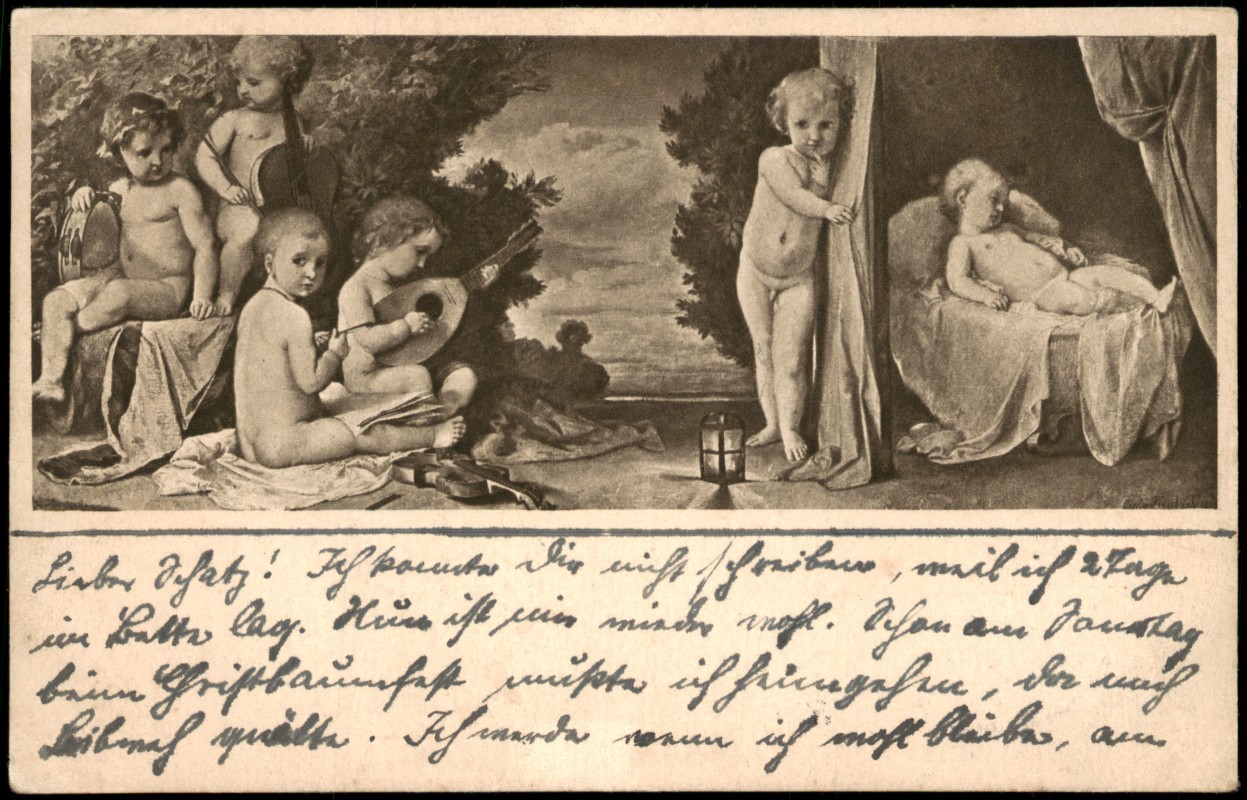 Lieber Schatz! Ich konnte Dir nicht schreiben, weil ich 2 Tage
im Bette lag. Nun ist mir wieder wohl. Schon am Sonntag
beim Christbaumfest mußte ich heimgehen, da mich
Leibweh quälte. Ich werde wenn ich wohl bleibe, am